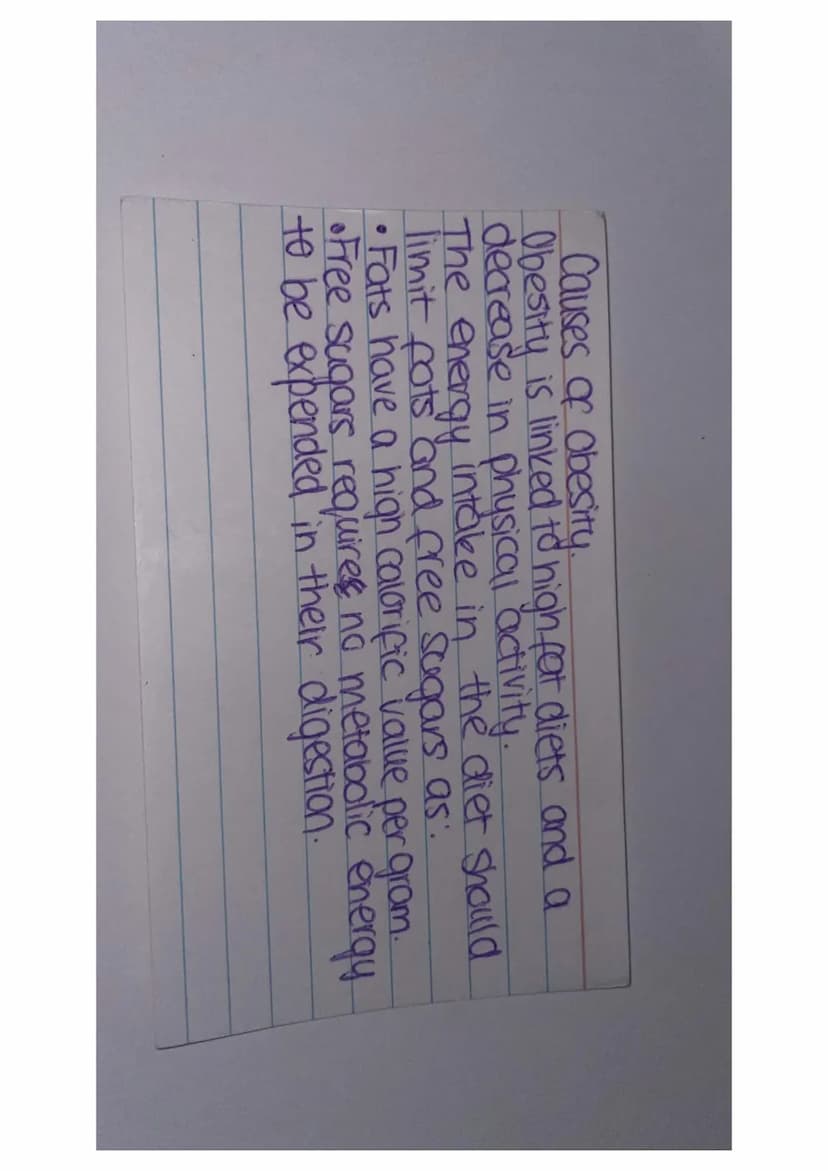 Causes of Obesity.
Obesity is linked to high fat diets and a
decrease in physical activity.
The energy intake in the diet should
limit fats and free sugars as:
• Fats have a high calorific value per gram.
• Free sugars requires no metabolic energy
to be expended in their digestion.